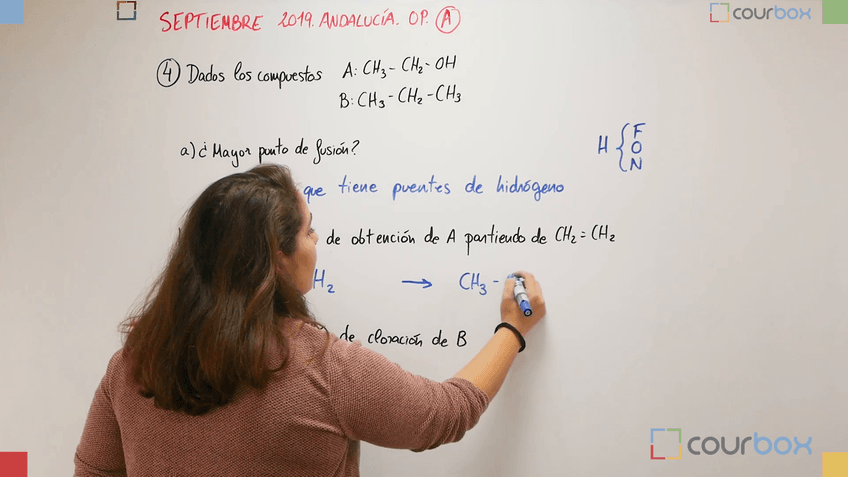 courbox
SEPTIEMBRE 2019. ANDALUCÍA. OP. A
4 Dados los compuestos A: CH3 - CH2 - OH
B: CH3 - CH2 - CH3
a) ¿Mayor punto de fusión?
H { F
O
N
que tiene puentes de hidrógeno
de obtención de A partiendo de CH2 = CH2
H2 → CH3 -
de cloración de B
courbox